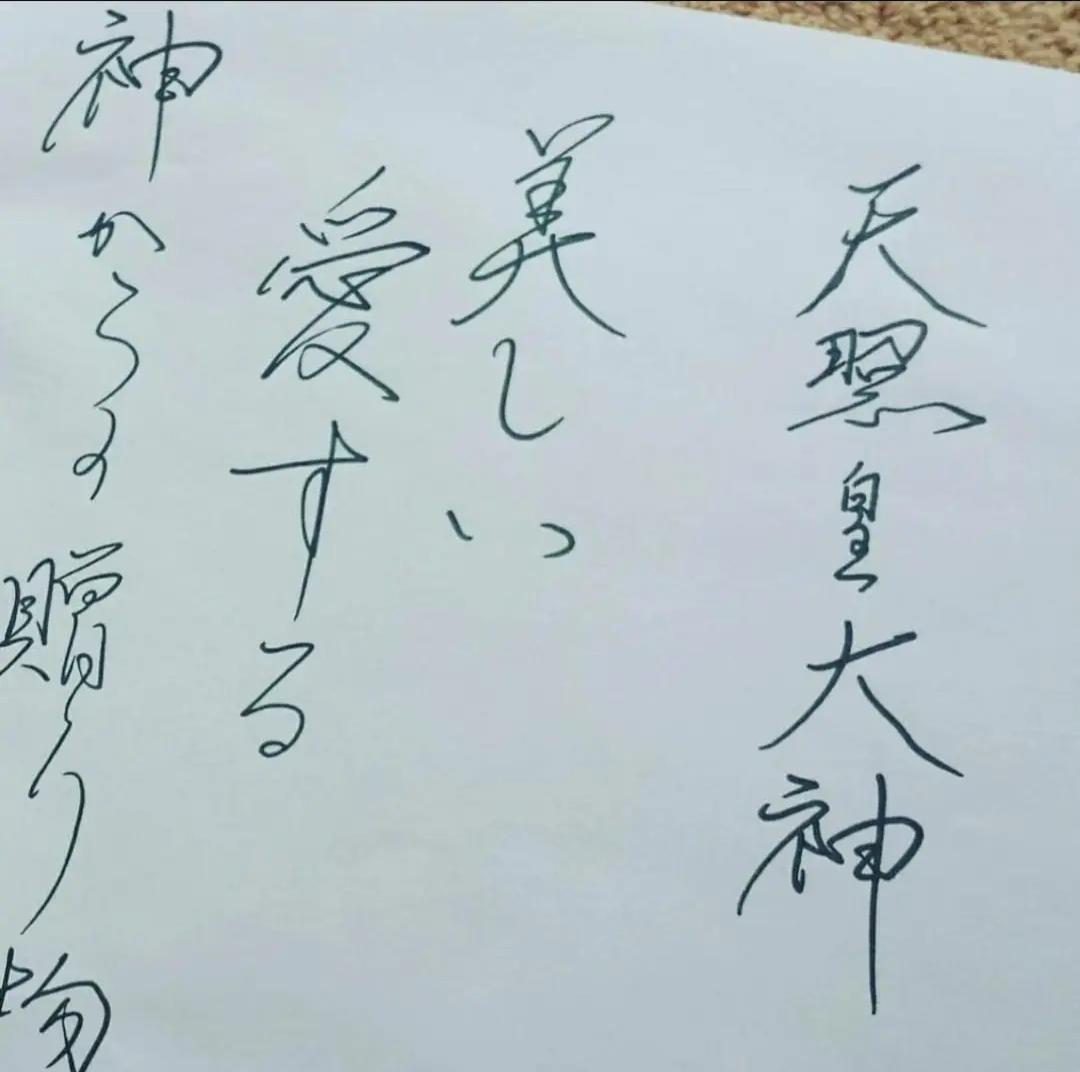 天照皇大神
美しい
愛する
神からの贈り物